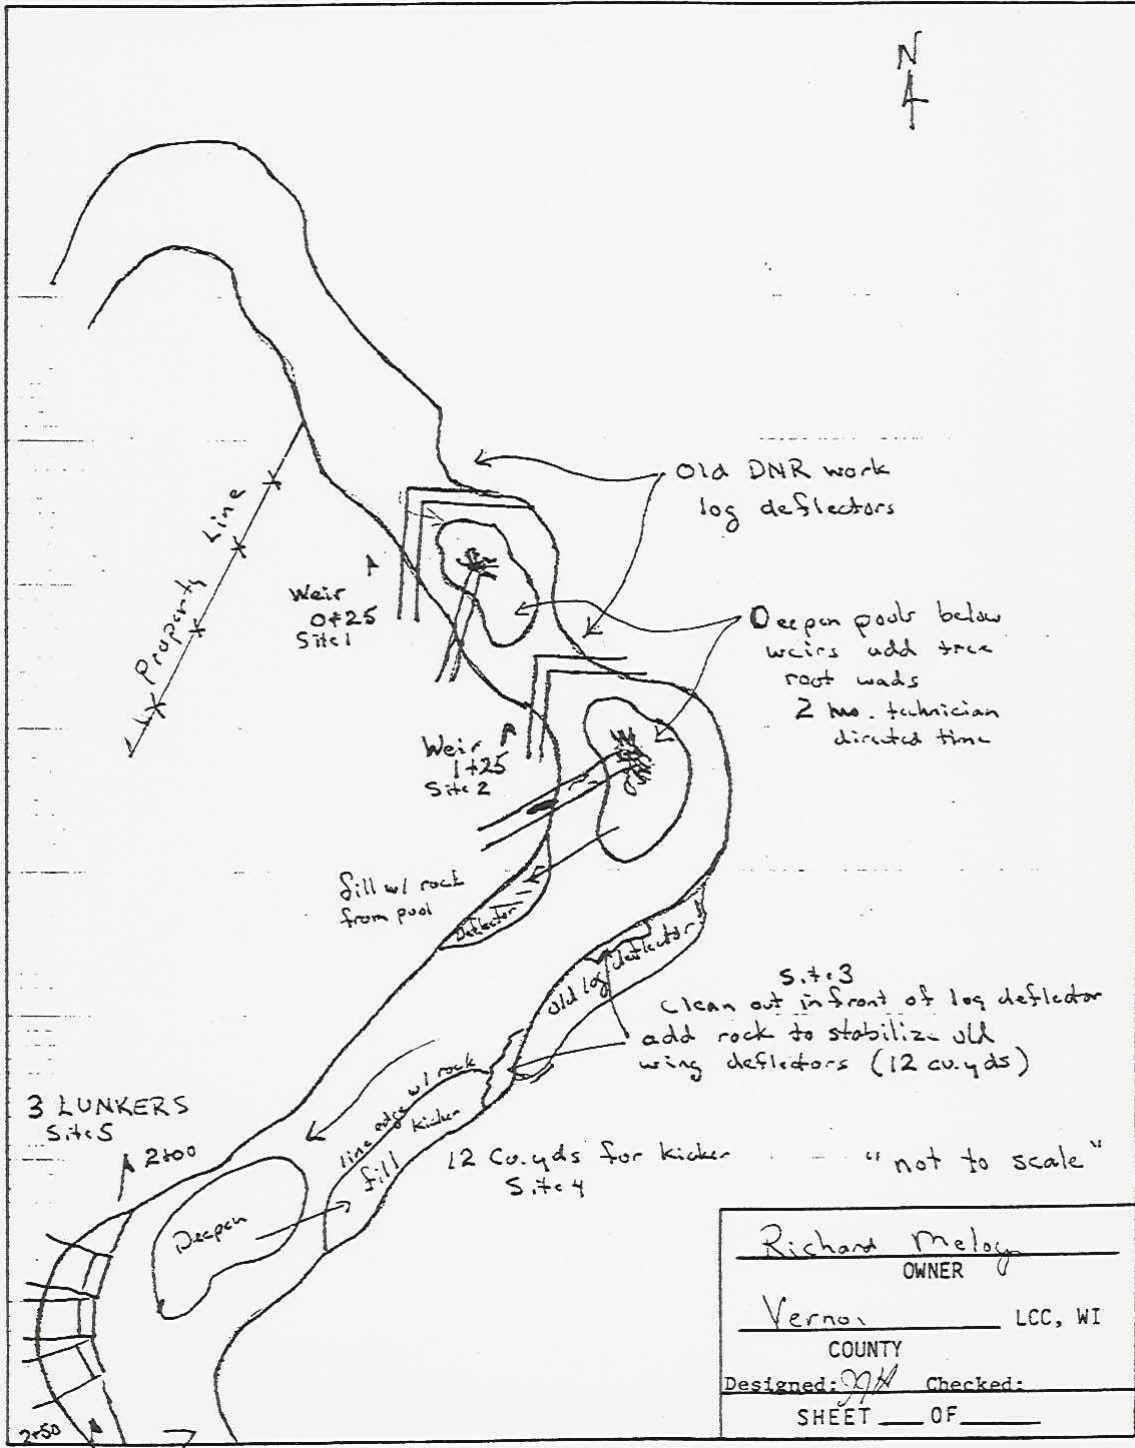 N
Old DNR work
log deflectors
Property Line
Weir
0+25
Site 1
Deepen pools below
weirs add tree
root wads
2 hrs. technician
directed time
Weir
1+25
Site 2
fill w/ rock
from pool
Deflector
old log deflector
Site 3
Clean out in front of log deflector
add rock to stabilize old
wing deflectors (12 cu.yds)
line edge w/ rock
kicker
fill
3 LUNKERS
Site 5
2+00
12 Cu.yds for kicker
Site 4
"not to scale"
Deepen
Richard Meloy
OWNER
Vernon LCC, WI
COUNTY
Designed: Checked:
SHEET OF
2+50